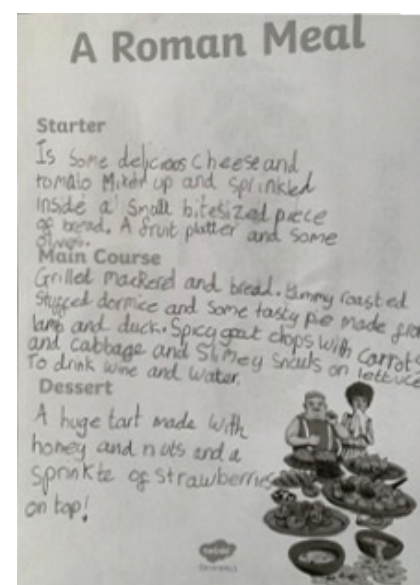 A Roman Meal
Starter
Is some delicious cheese and
tomato Mixed up and sprinkled
inside a small bitesized piece
of bread. A fruit platter and some
olives.
Main Course
Grilled mackerel and bread. Yummy roasted
stuffed dormice and some tasty pie made from
lamb and duck. Spicy goat chops with carrots
and cabbage and Slimey snails on lettuce
To drink wine and water.
Dessert
A huge tart made with
honey and nuts and a
sprinkle of strawberries
on top!
twinkl